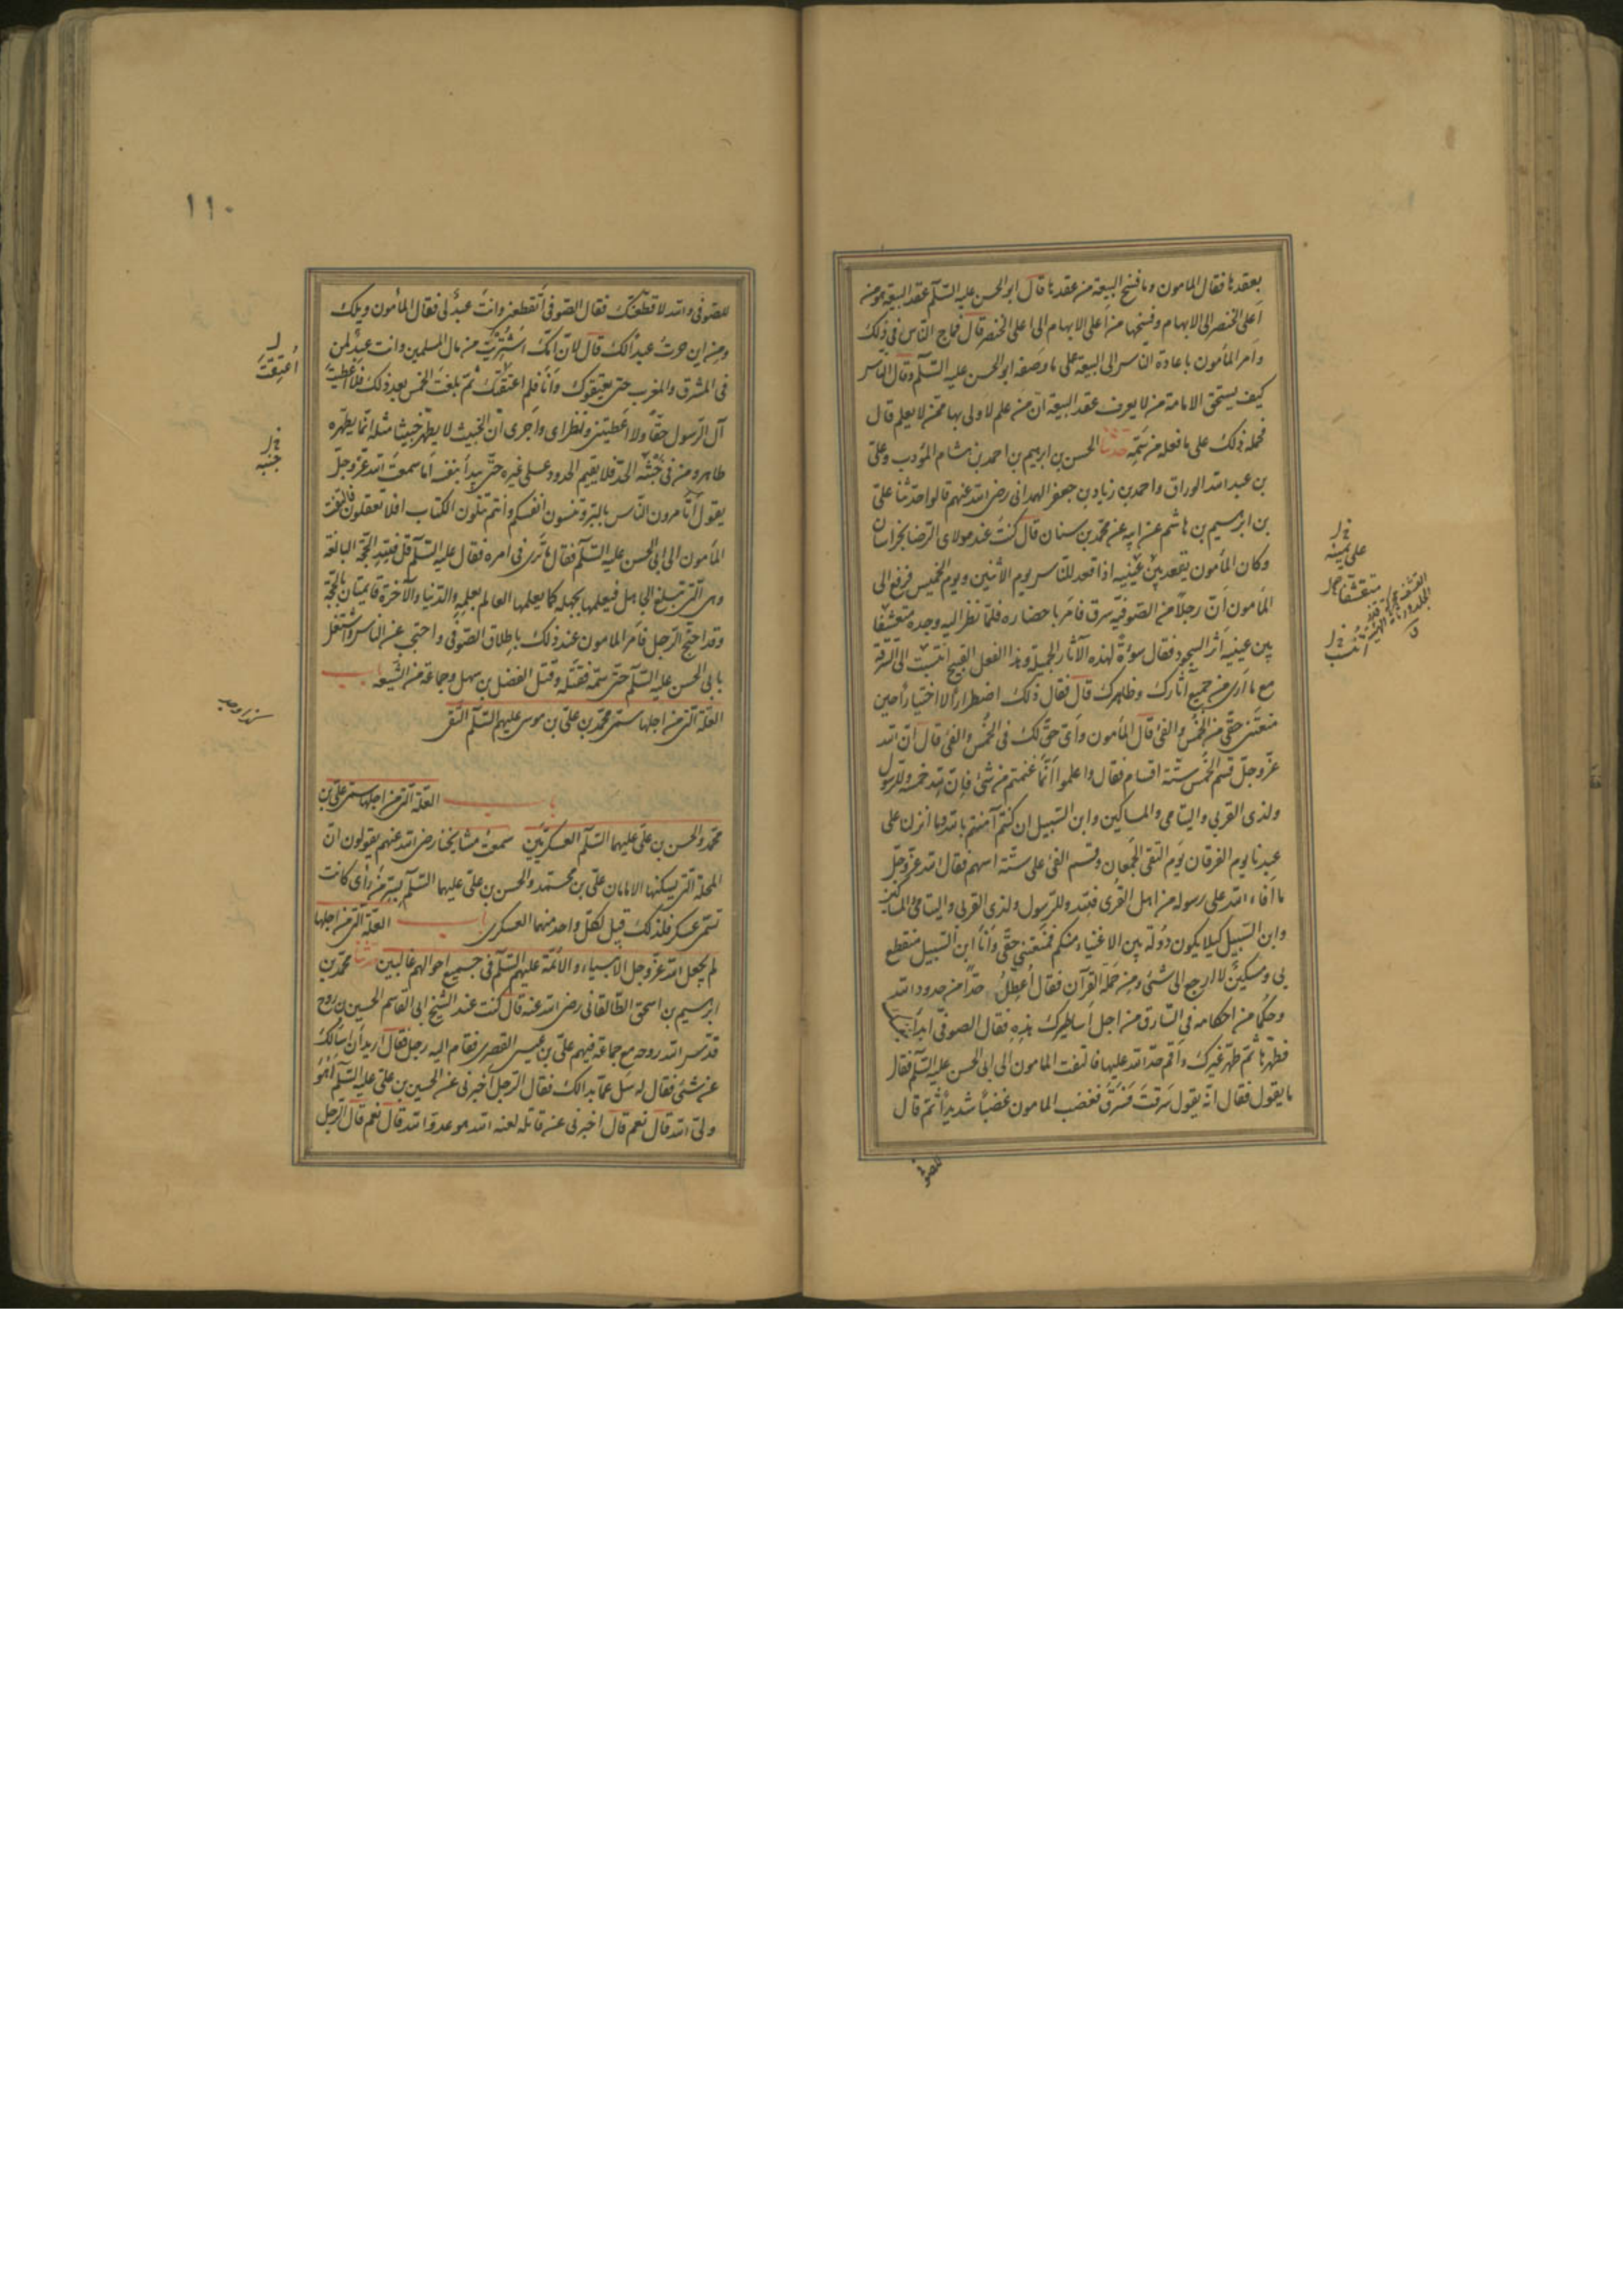 بعقدها فقال المامون وما فسخ البيعة من عقدها قال ابو الحسن عليه السّلم عقد البيعة هو من
اعلى الخنصر الى الابهام وفسخها من اعلى الابهام الى اعلى الخنصر قال فماج النّاس فى ذلك
وامر المأمون باعادة الناس الى البيعة على ما وصفه ابو الحسن عليه السّلم وقال النّاس
كيف يستحق الامامة من لا يعرف عقد البيعة انّ من علم لاولى بها ممّن لا يعلم قال
فحمله ذلك على ما فعله من سَمّه حدّثنا الحسن بن ابرهيم بن احمد بن هشام المؤدب وعلى
بن عبد الله الوراق واحمد بن زياد بن جعفر الهمدانى رضى الله عنهم قالوا حدّثنا على
بن ابرهيم بن هاشم عن ابيه عن محمّد بن سنان قال كنت عند مولاى الرّضا بخراسان
وكان المأمون يقعد بين عينيه اذا قعد للنّاس يوم الاثنين ويوم الخميس فرفع الى
المامون انّ رجلاً من الصّوفيّة سرق فامر باحضاره فلمّا نظر اليه وجده متقشفا
بين عينيه اثر السجود فقال سوءةً لهذه الآثار الجميلة وهذا الفعل القبيح اتنسب الى السّرقة
مع ما ارى من جميع آثارك وظاهرك قال فقال ذلك اضطراراً لا اختياراً حين
منعتنى حقّى من الخُمس والفىء قال المأمون وأىّ حقّ لك فى الخُمس والفىء قال انّ الله
عزّ وجلّ قسم الخُمس ستّة اقسام فقال واعلموا انّما غنمتم من شئ فانّ لله خمسه وللرّسول
ولذى القربى واليتامى والمساكين وابن السّبيل ان كنتم آمنتم بالله وما انزلنا على
عبدنا يوم الفرقان يوم التقى الجمعان وقسم الفىء على ستّة اسهم فقال الله عزّ وجلّ
ما افاء الله على رسوله من اهل القرى فلله وللرّسول ولذى القربى واليتامى والمساكين
وابن السّبيل كيلا يكون دُولة بين الاغنياء منكم فمنعتنى حقّى وانا ابن السّبيل منقطع
بى ومسكين لا ارجع الى شئ ومن حَمَلة القرآن فقال أعطّل حدّاً من حدود الله
وحكما من احكامه فى السّارق من اجل أساطيرك هذه فقال الصوفىّ ابدأ
فطهّرها ثمّ طهّر غيرك وأقم حدّ الله عليها فالتفت المامون الى ابى الحسن عليه السّلم فقال
ما يقول فقال انّه يقول سَرقتَ فسَرَق فغضب المامون غضباً شديداً ثمّ قال
للصوفى
على يمينه
متقشفا
١١٠
للصّوفى والله لاقطعنّك فقال الصّوفى أتقطعنى وانت عبدٌ لى فقال المأمون ويلك
ومن اين صرتُ عبداً لك قال لانّ امّك اشتُريَت من مال المسلمين وانت عبدٌ لمن
فى المشرق والمغرب حتى يعتقوك وأنا فلم اعتقك ثمّ بلغتَ الخمس بعد ذلك فلا اعطيتَ
آل الرّسول حقّاً ولا اعطيتنى ونظراى واُخرى انّ الخبيث لا يطهّر خبيثا مثله انّما يطهّره
طاهر ومن فى جُثّته الحدّ فلا يقيم الحدود على غيره حتّى يبدأ بنفسه أما سمعتَ الله عزّ وجلّ
يقول أتأمرون النّاس بالبرّ وتنسون انفسكم وانتم تتلون الكتاب افلا تعقلون فالتفت
المأمون الى ابى الحسن عليه السّلم فقال ما ترى فى امره فقال عليه السّلم قل فللّه الحجّة البالغة
وهى الّتى تبلغ الجاهل فيعلمها بجهله كما يعلمها العالم بعلمه والدّنيا والآخرة قايمتان بالحجّة
وقد احتجّ الرّجل فأمر المامون عند ذلك باطلاق الصّوفى واحتجب عن النّاس واشتغل
بابى الحسن عليه السّلم حتّى سمّه فقتله وقتل الفضل بن سهل وجماعة من الشّيعة باب
العلّة الّتى من اجلها سمّى محمّد بن علىّ بن موسى عليهم السّلم التّقى
باب العلّة الّتى من اجلها سمّى علىّ بن
محمّد والحسن بن علىّ عليهما السّلم العسكريّين سمعت مشايخنا رضى الله عنهم يقولون انّ
المحلة الّتى يسكنها الامامان علىّ بن محمّد والحسن بن علىّ عليهما السّلم بسرّ من رأى كانت
تسمّى عسكر فلذلك قيل لكلّ واحد منهما العسكرى باب العلّة الّتى من اجلها
لم يجعل الله عزّ وجل الانبياء والائمّة عليهم السّلم فى جميع احوالهم غالبين حدّثنا محمّد بن
ابرهيم بن اسحق الطّالقانى رضى الله عنه قال كنت عند الشّيخ ابى القاسم الحسين بن روح
قدّس الله روحه مع جماعة فيهم علىّ بن عيسى القصرى فقام اليه رجل فقال اريد ان اسألك
عن شئ فقال له سَل عمّا بدا لك فقال الرّجل اخبرنى عن الحسين بن علىّ عليه السّلم أهو
ولىّ الله قال نعم قال اخبرنى عن قاتله لعنه الله أهو عدوّ الله قال نعم قال الرّجل
اُعتِقتَ
جنبه